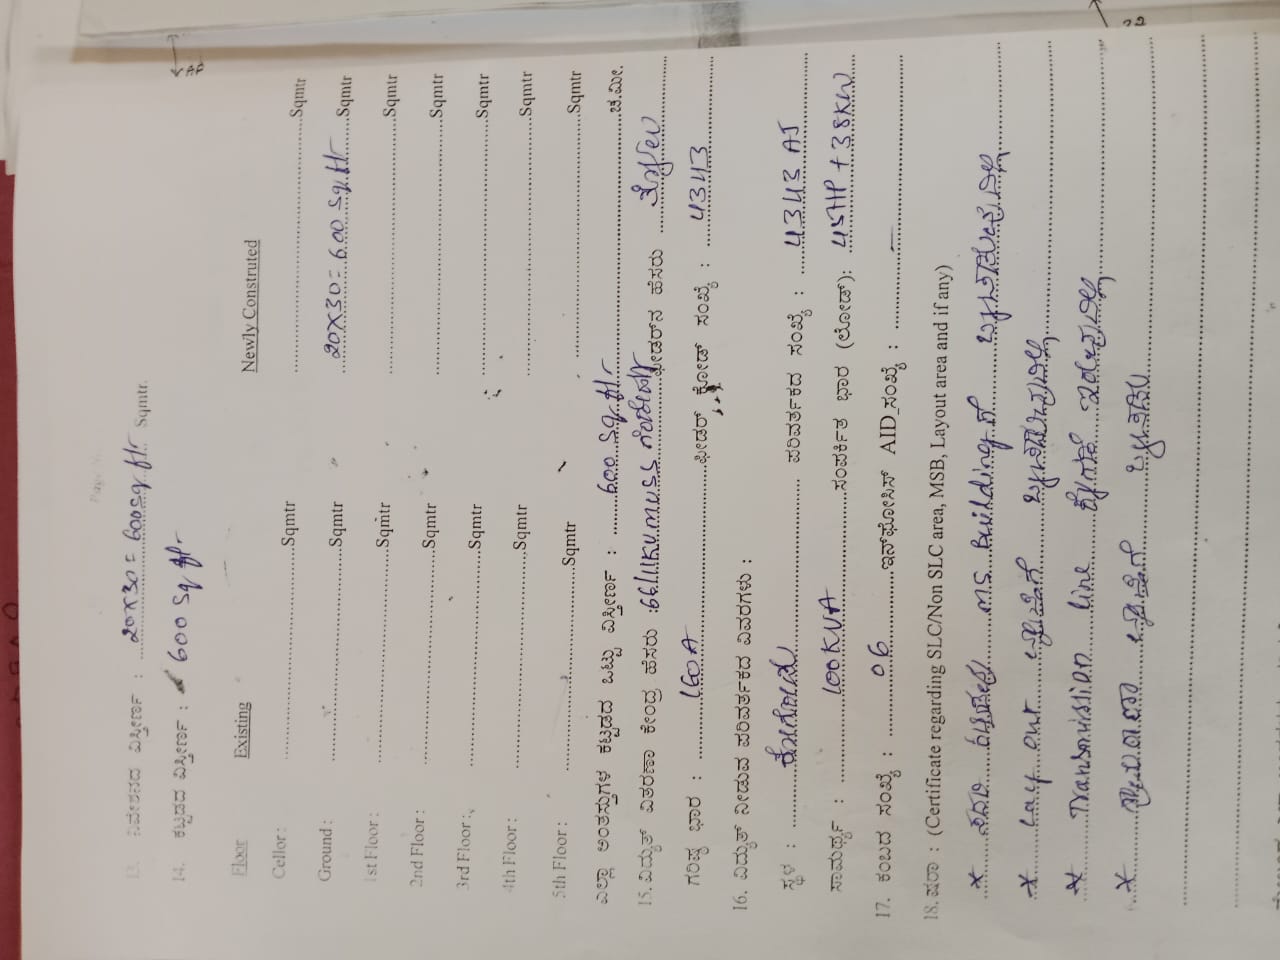 13. ನಿವೇಶನದ ವಿಸ್ತೀರ್ಣ : 20X30 = 600 sq ft Sqmtr.
14. ಕಟ್ಟಡದ ವಿಸ್ತೀರ್ಣ : 600 sq ft
Floor Existing Newly Construted
Cellor : Sqmtr Sqmtr
Ground : Sqmtr 20X30 = 600 sq ft Sqmtr
1st Floor : Sqmtr Sqmtr
2nd Floor : Sqmtr Sqmtr
3rd Floor : Sqmtr Sqmtr
4th Floor : Sqmtr Sqmtr
5th Floor : Sqmtr Sqmtr
ಎಲ್ಲಾ ಅಂತಸ್ತುಗಳ ಕಟ್ಟಡದ ಒಟ್ಟು ವಿಸ್ತೀರ್ಣ : 600 sq ft ಚ.ಮೀ.
15. ವಿದ್ಯುತ್ ವಿತರಣಾ ಕೇಂದ್ರ ಹೆಸರು : 66/11KV MUSS ಫೀಡರ್‌ನ ಹೆಸರು
ಗರಿಷ್ಠ ಭಾರ : 160A ಫೀಡರ್ ಕೋಡ್ ಸಂಖ್ಯೆ : 4343
16. ವಿದ್ಯುತ್ ನೀಡುವ ಪರಿವರ್ತಕದ ವಿವರಗಳು :
ಸ್ಥಳ : ಪರಿವರ್ತಕದ ಸಂಖ್ಯೆ : 4343 AJ
ಸಾಮರ್ಥ್ಯ : 100KVA ಸಂಪರ್ಕಿತ ಭಾರ (ಲೋಡ್): 45HP + 38KW
17. ಕಂಬದ ಸಂಖ್ಯೆ : 06 ಇನ್‌ಫೋಸಿಸ್ AID ಸಂಖ್ಯೆ : —
18. ಷರಾ : (Certificate regarding SLC/Non SLC area, MSB, Layout area and if any)
* ಸದರಿ ಕಟ್ಟಡವು MS Building ಗೆ
* Lay out
* Transmission line ಕೆಳಗಡೆ ಇರುವುದಿಲ್ಲ
*